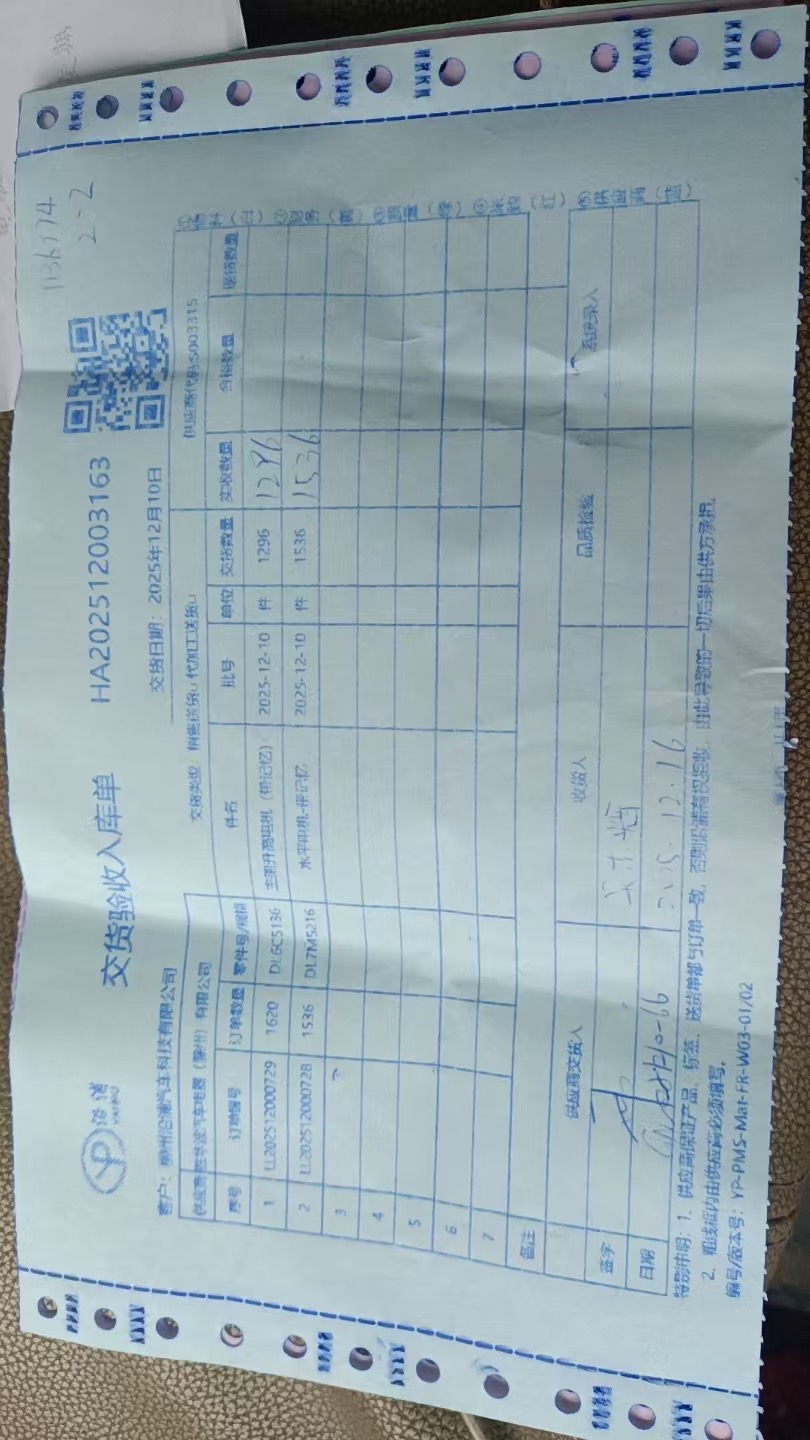 1136174
2-2
沿浦
YANPU
交货验收入库单
HA202512003163
交货日期：2025年12月10日
客户：柳州沿浦汽车科技有限公司
交货类型：销售送货□ 代加工送货□
供应商代码S003315
汽车电器（柳州）有限公司
序号 订单编号 订单数量 零件号/规格 件名 批号 单位 交货数量 实收数量 合格数量 退货数量
1 LL202512000729 1620 DL6C5136 主架升高电机（带记忆） 2025-12-10 件 1296 1296
2 LL202512000728 1536 DL7M5216 水平电机-带记忆 2025-12-10 件 1536 1536
3
4
5
6
7
备注
供应商交货人 收货人 品质检验 系统录入
签字
日期 2025.12.16
①物料（白） ②财务（黄） ③质量（绿） ④采购（红） ⑤供应商（蓝）
特别申明：1、供应商保证产品、标签、送货单都与订单一致，否则沿浦有权拒收，由此导致的一切后果由供方承担。
2、粗线框内由供应商必须填写。
编号/版本号：YP-PMS-Mat-FR-W03-01/02